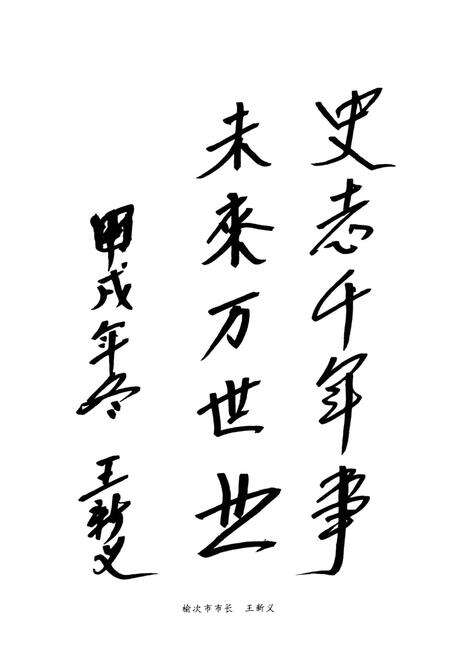 史志千年事
未來万世业
甲戌年冬 王新义
榆次市市长 王新义